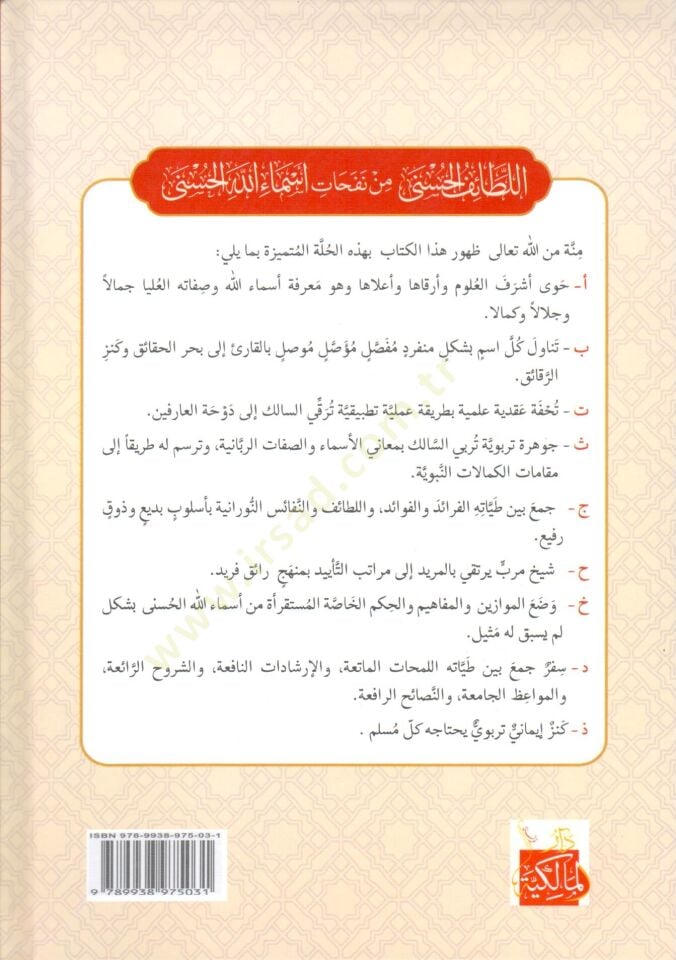 اللَّطَائِفُ الحُسْنَى مِنْ نَفَحَاتِ أَسْمَاءِ اللهِ الحُسْنَى
مِنَّة من الله تعالى ظهور هذا الكتاب بهذه الحُلَّة المُتميزة بما يلي:
أ- حَوى أشرَفَ العُلوم وأرقاها وأعلاها وهو مَعرفة أسماء الله وصِفاته العُليا جمالاً
وجلالاً وكمالا.
ب- تَناولَ كُلَّ اسمٍ بشكلٍ منفردٍ مُفَصَّلٍ مُؤَصَّلٍ مُوصلٍ بالقارئ إلى بحر الحقائق وكَنزِ
الرَّقائق.
ت- تُحْفَة عَقدية علمية بطريقة عمليَّة تطبيقيَّة تُرَقِّي السالك إلى دَوْحَة العارفين.
ث- جوهرة تربويَّة تُربي السَّالك بمعاني الأسماء والصفات الربَّانية، وترسم له طريقاً إلى
مقامات الكمالات النَّبويَّة.
ج- جمعَ بين طَيَّاتِهِ الفرائدَ والفوائد، واللطائفَ والنَّفائس النُّورانية بأسلوبٍ بديعٍ وذوقٍ
رفيع.
ح- شيخ مربٍّ يرتقي بالمريد إلى مراتب التَّأييد بمنهَجٍ رائق فريد.
خ- وَضَعَ الموازين والمفاهيم والحِكم الخاصَّة المُستقرأة من أسماء الله الحُسنى بشكل
لم يسبق له مَثيل.
د- سِفرٌ جمعَ بين طيَّاته اللمحات الماتعة، والإرشادات النافعة، والشروح الرَّائعة،
والمواعِظ الجامعة، والنَّصائح الرافعة.
ذ- كَنزٌ إيمانيٌّ تربويٌّ يحتاجه كلّ مُسلم .
www.irsad.com.tr
ISBN 978-9938-975-03-1
9 789938 975031
دار
المالكية